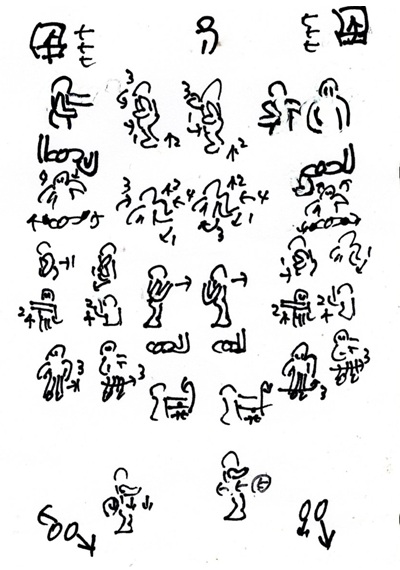 3 3
1
2 2
3 2 2
4 4
1 3 1
1 1
2 2 2 2
3 3
3 3
1